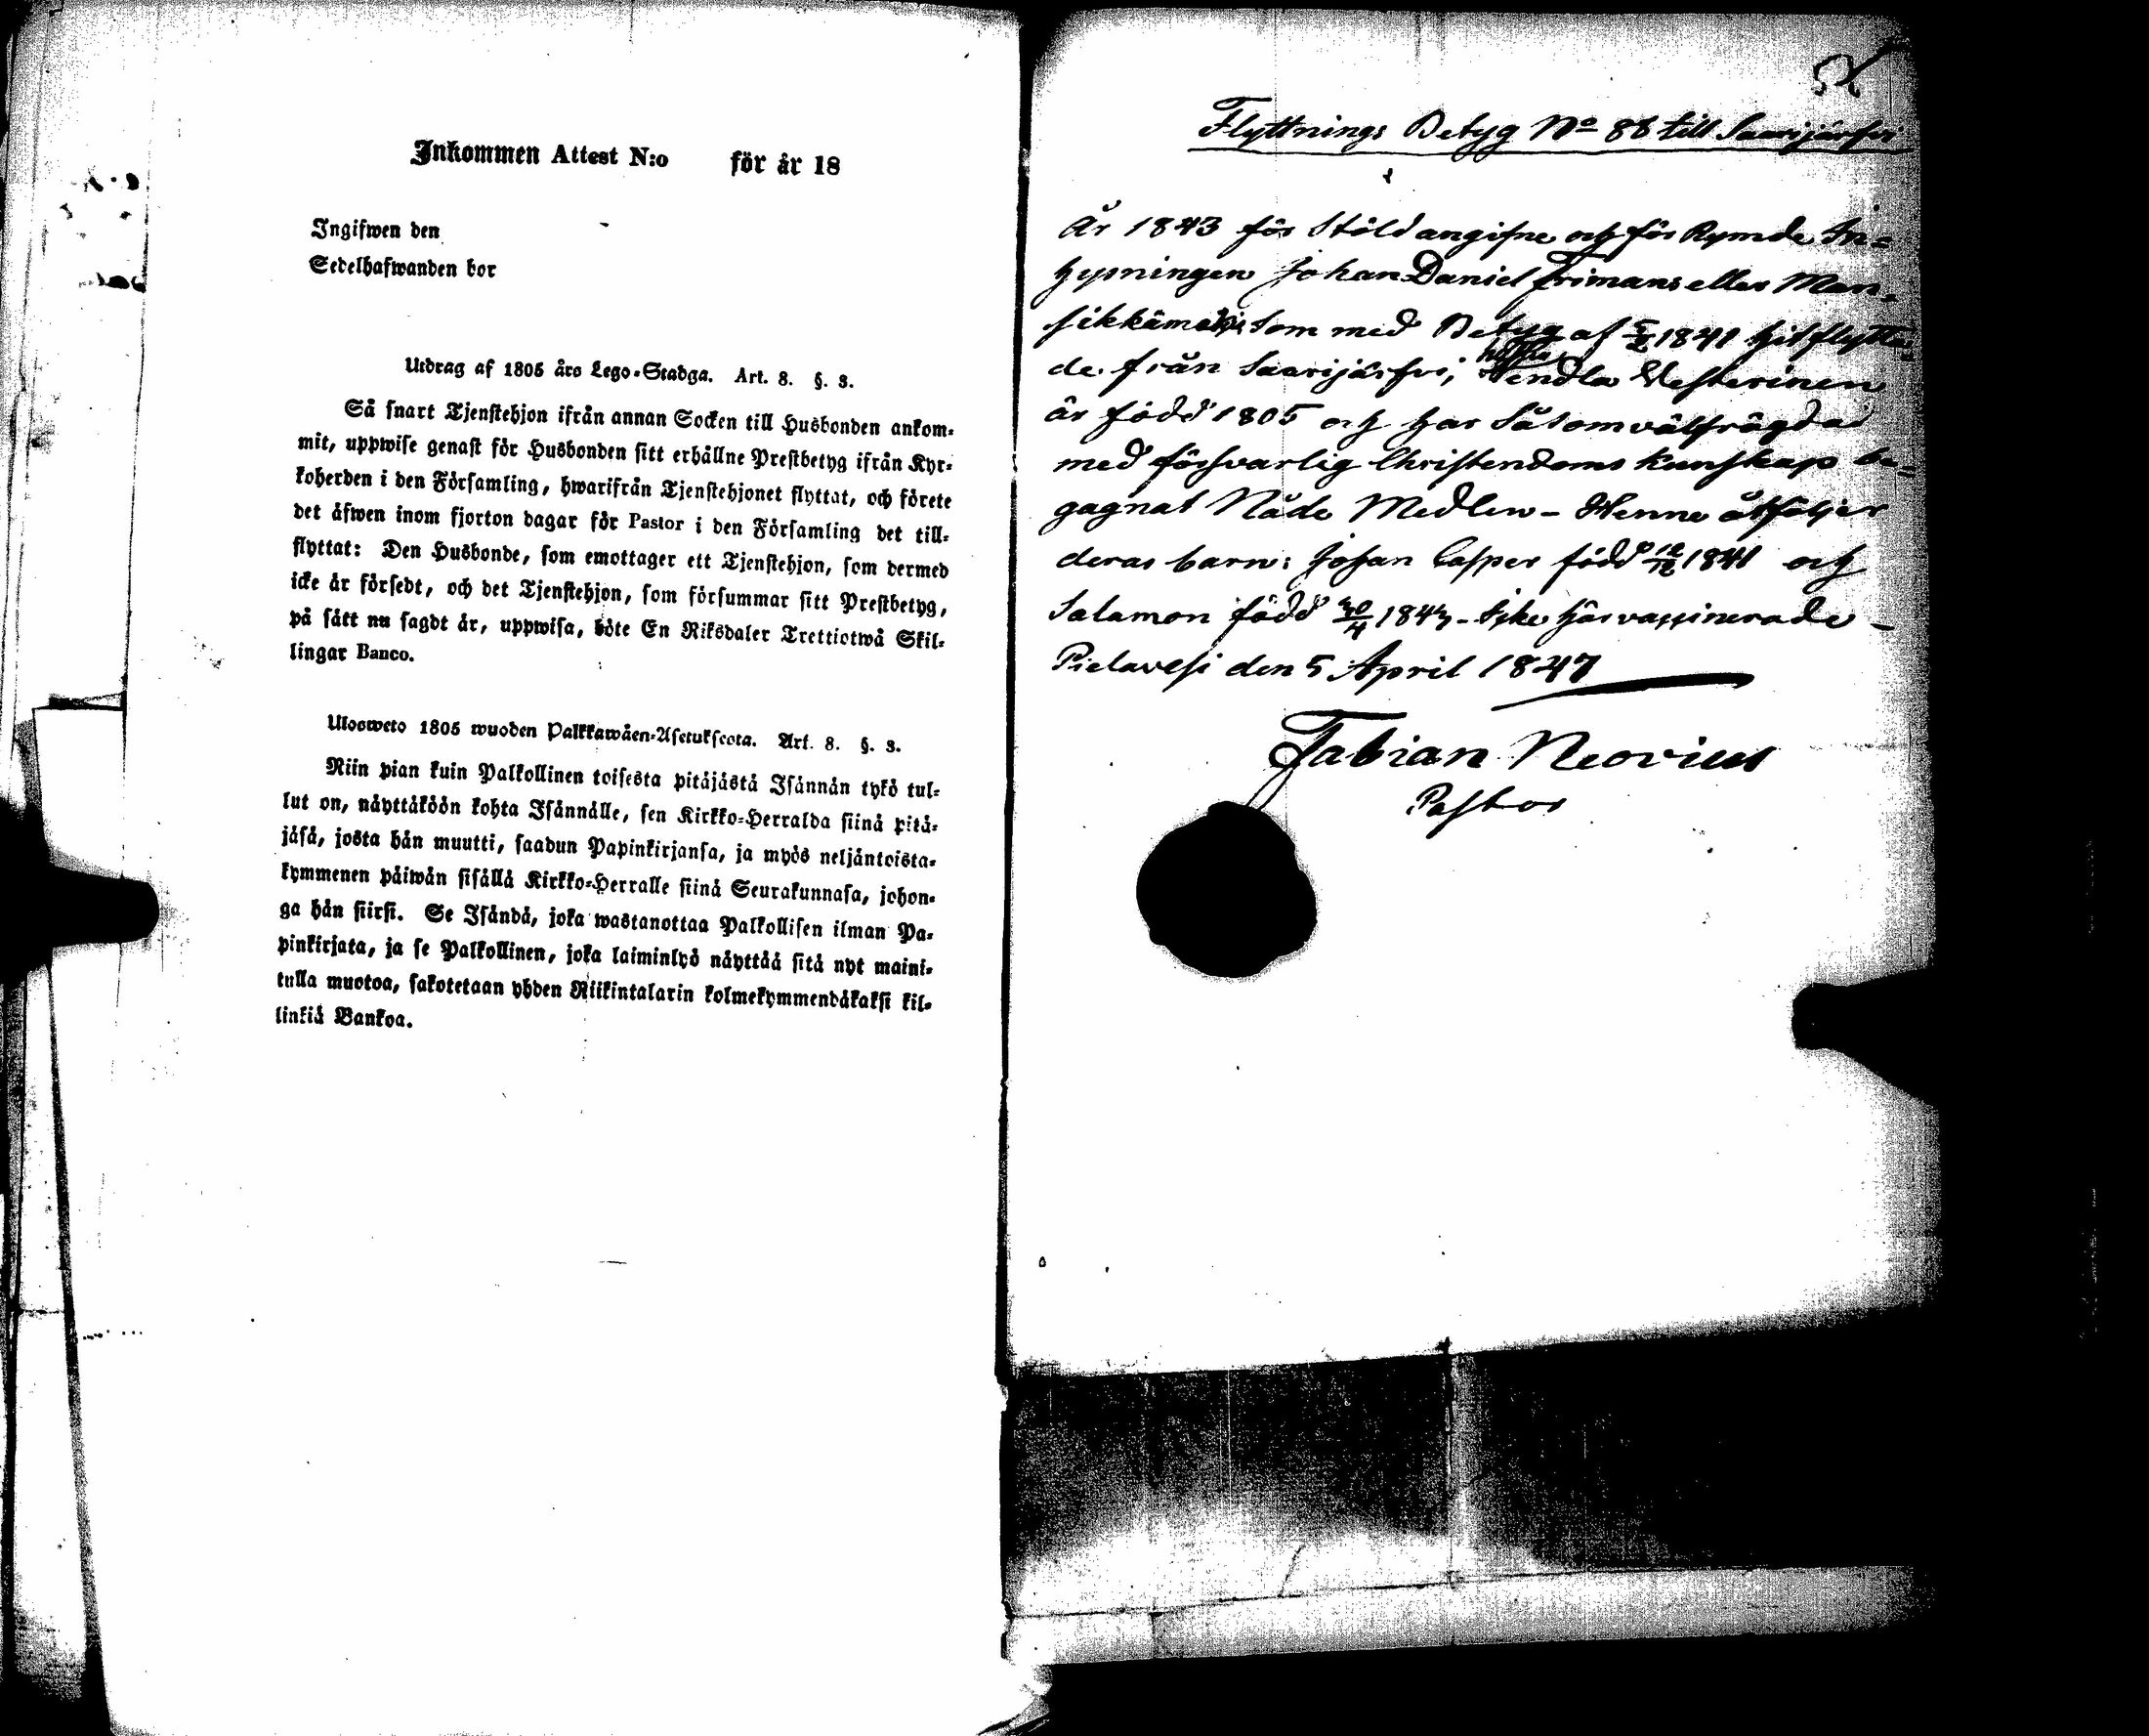 Inkommen Attest N:o för år 18
Ingifwen den
Sedelhafwanden bor
Utdrag af 1805 års Lego-Stadga. Art. 8. §. 3.
Så snart Tjenstehjon ifrån annan Socken till Husbonden ankom-
mit, uppwise genast för Husbonden sitt erhållne Prestbetyg ifrån Kyr-
koherden i den Församling, hwarifrån Tjenstehjonet flyttat, och förete
det äfwen inom fjorton dagar för Pastor i den Församling det till-
flyttat: Den Husbonde, som emottager ett Tjenstehjon, som dermed
icke är försedt, och det Tjenstehjon, som försummar sitt Prestbetyg,
på sätt nu sagdt är, uppwisa, böte En Riksdaler Trettiotwå Skil-
lingar Banco.
Ulosweto 1805 wuoden Palkkawäen-Asetuksesta. Art. 8. §. 3.
Niin pian kuin Palkollinen toisesta pitäjästä Isännän tykö tul-
lut on, näyttäköön kohta Isännälle, sen Kirkko-Herralda siinä pitä-
jäsä, josta hän muutti, saadun Papinkirjansa, ja myös neljäntoista-
kymmenen päiwän sisällä Kirkko-Herralle siinä Seurakunnasa, johon-
ga hän siirsi. Se Isändä, joka wastanottaa Palkollisen ilman Pa-
pinkirjata, ja se Palkollinen, joka laiminlyö näyttää sitä nyt maini-
tulla muotoa, sakotetaan yhden Riikintalarin kolmekymmendäkaksi kil-
linkiä Bankoa.
Flyttnings Betyg No 86 till Saarijärfvi
År 1843 för Stöld angifne och för Rymde In-
hysningen Johan Daniel Frimans eller Man-
sikkämäki som med Betyg af 1841 hitflytta-
de från Saarijärfvi, hustru Wendla Westerinen
är född 1805 och har Såsom välfrägdad
med försvarlig Christendoms Kunskap be-
gagnat Nåde Medlen - Henne åtfölljer
deras barn: Johan Casper född 1841 och
Salamon född 30/4 184 - Icke här vaxsinerade -
Pielavesi den 5 April 1847
Fabian Neovius
Pastor